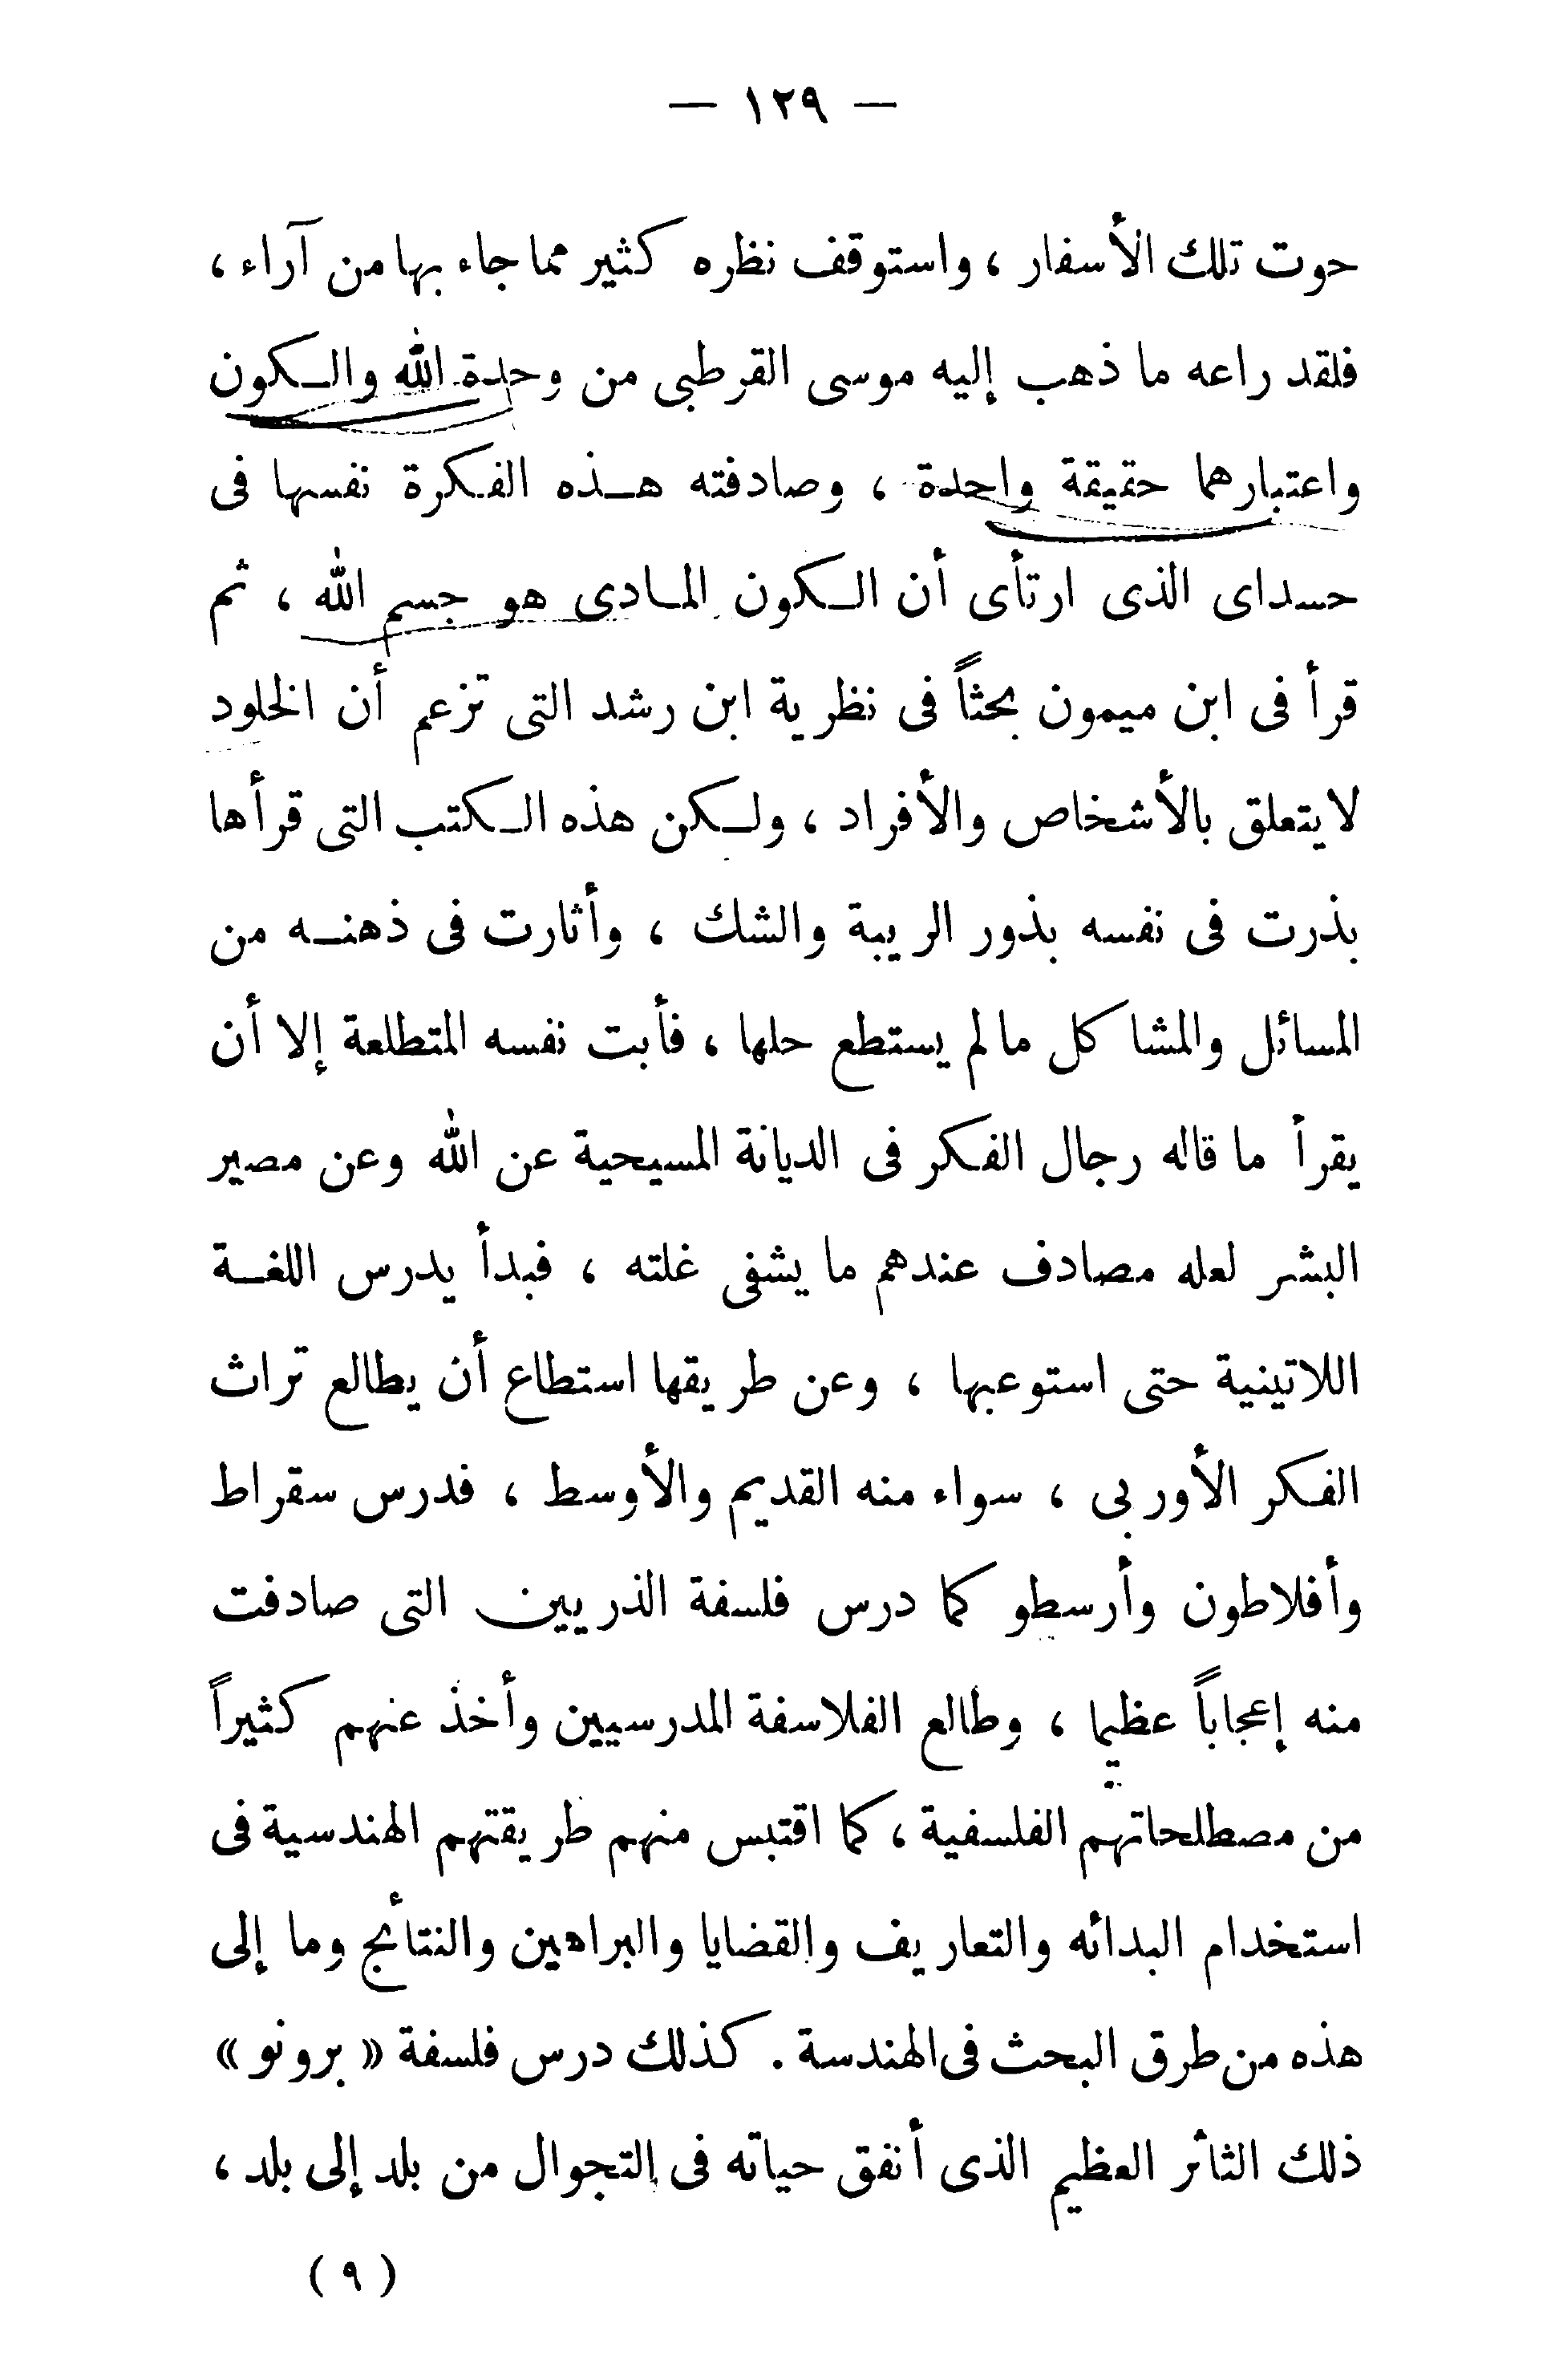 — ١٢٩ —
حوت تلك الأسفار ، واستوقف نظره كثير مما جاء بها من آراء ،
فلقد راعه ما ذهب إليه موسى القرطبى من وحدة الله والـكون
واعتبارهما حقيقة واحدة ، وصادفته هـذه الفكرة نفسها فى
حسداى الذى ارتأى أن الـكون المـادى هو جسم الله ، ثم
قرأ فى ابن ميمون بحثاً فى نظرية ابن رشد التى تزعم أن الخلود
لا يتعلق بالأشخاص والأفراد ، ولـكن هذه الـكتب التى قرأها
بذرت فى نفسه بذور الريبة والشك ، وأثارت فى ذهنـه من
المسائل والمشاكل ما لم يستطع حلها ، فأبت نفسه المتطلعة إلا أن
يقرأ ما قاله رجال الفكر فى الديانة المسيحية عن الله وعن مصير
البشر لعله مصادف عندهم ما يشفى غلته ، فبدأ يدرس اللغـة
اللاتينية حتى استوعبها ، وعن طريقها استطاع أن يطالع تراث
الفكر الأوربى ، سواء منه القديم والأوسط ، فدرس سقراط
وأفلاطون وأرسطو كما درس فلسفة الذريين التى صادفت
منه إعجاباً عظيما ، وطالع الفلاسفة المدرسيين وأخذ عنهم كثيراً
من مصطلحاتهم الفلسفية ، كما اقتبس منهم طريقتهم الهندسية فى
استخدام البدائه والتعاريف والقضايا والبراهين والنتائج وما إلى
هذه من طرق البحث فى الهندسة . كذلك درس فلسفة « برونو »
ذلك الثائر العظيم الذى أنفق حياته فى التجوال من بلد إلى بلد ،
( ٩ )